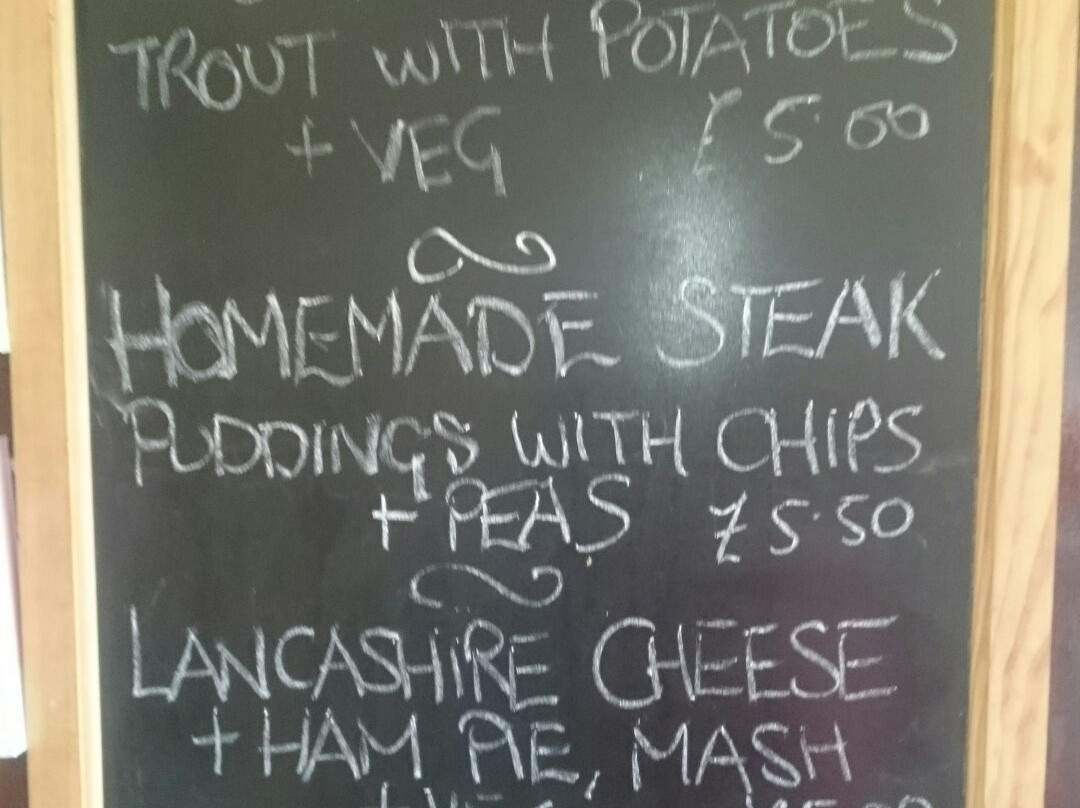 TROUT WITH POTATOES
+ VEG £5.00
HOMEMADE STEAK
PUDDINGS WITH CHIPS
+ PEAS £5.50
LANCASHIRE CHEESE
+ HAM PIE, MASH